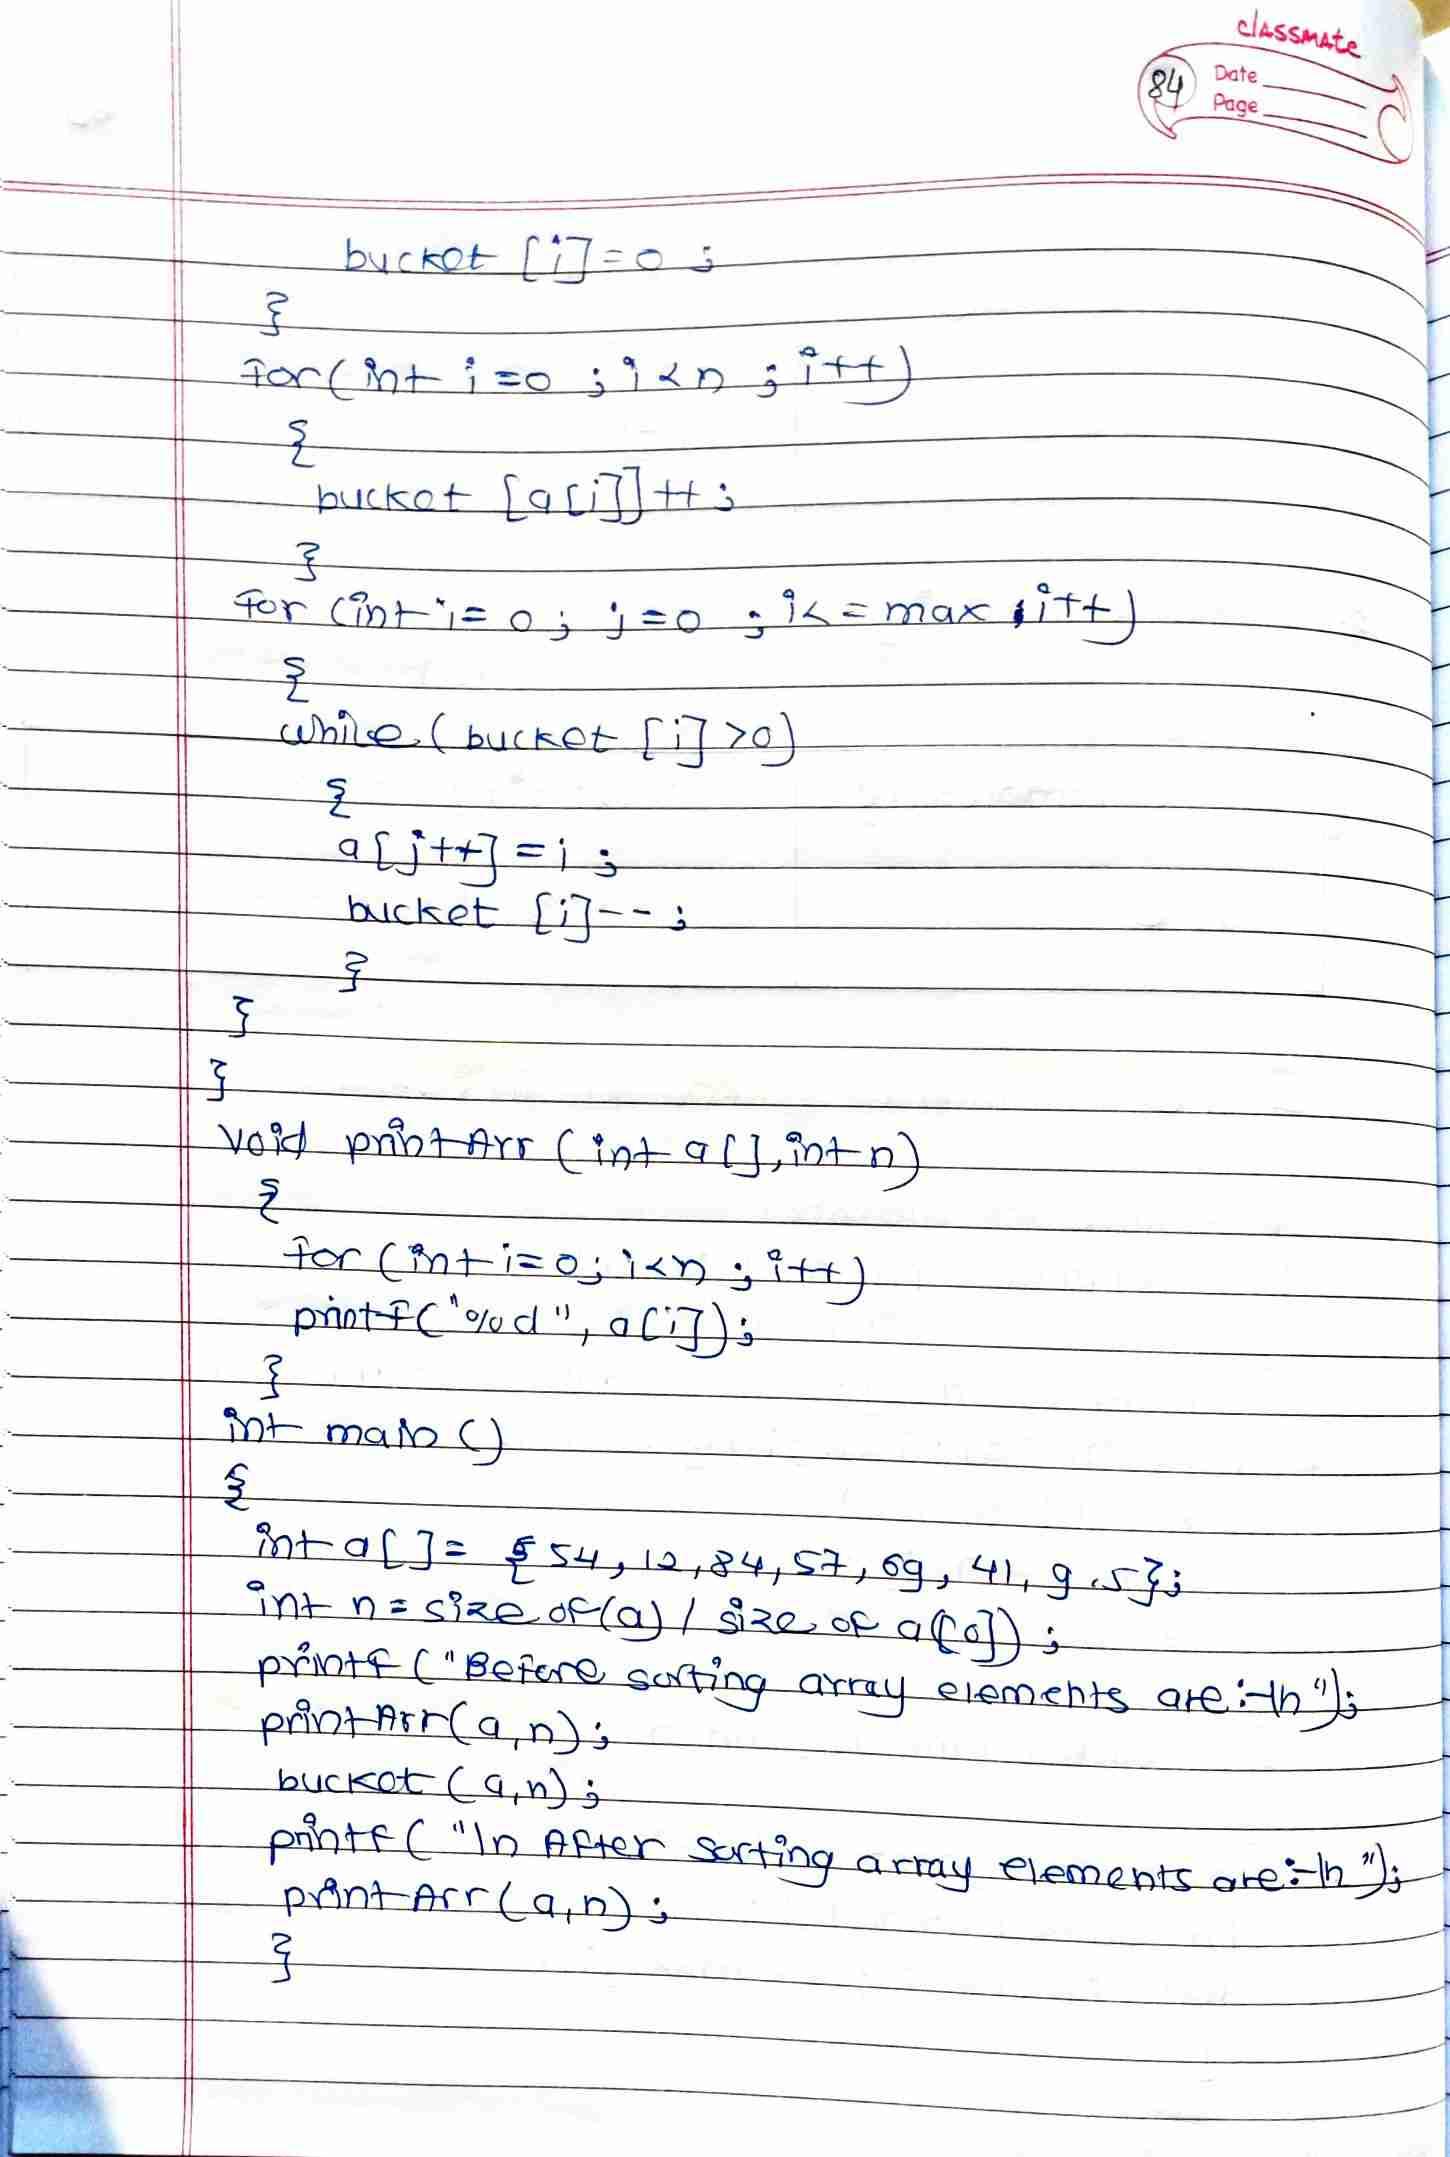 classmate
84
Date
Page
bucket [i]=0 ;
}
for(int i=0 ; i<n ; i++)
{
bucket [a[i]]++ ;
}
for (int i= 0 ; j=0 ; i<=max ; i++)
{
while (bucket [i] >0)
{
a[j++] = i ;
bucket [i]-- ;
}
}
}
void printArr (int a[], int n)
{
for (int i=0 ; i<n ; i++)
printf("%d", a[i]);
}
int main ()
{
int a[]= {54, 12, 84, 57, 69, 41, 9, 5};
int n = size of (a) / size of a([0]) ;
printf ("Before sorting array elements are:-\n");
printArr(a,n) ;
bucket (a,n) ;
printf( "\n After sorting array elements are:-\n");
printArr(a,n) ;
}